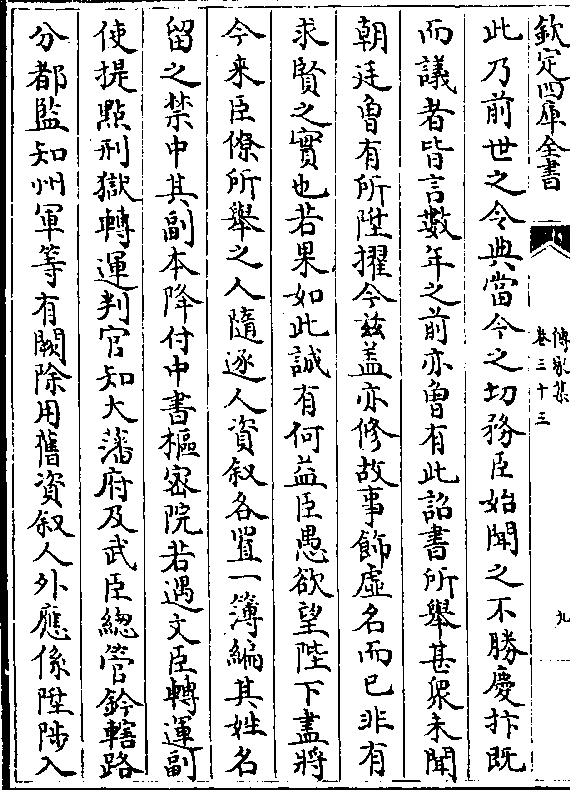 欽定四庫全書
傳家集
卷三十三
九
此乃前世之令典當今之切務臣始聞之不勝慶抃既
而議者皆言數年之前亦曾有此詔書所舉甚衆未聞
朝廷曾有所陞擢今兹盖亦修故事飾虛名而已非有
求賢之實也若果如此誠有何益臣愚欲望陛下盡將
今来臣僚所舉之人隨逐人資叙各置一簿編其姓名
留之禁中其副本降付中書樞密院若遇文臣轉運副
使提㸃刑獄轉運判官知大藩府及武臣總管鈐轄路
分都監知州軍等有闕除用舊資叙人外應係陞陟入